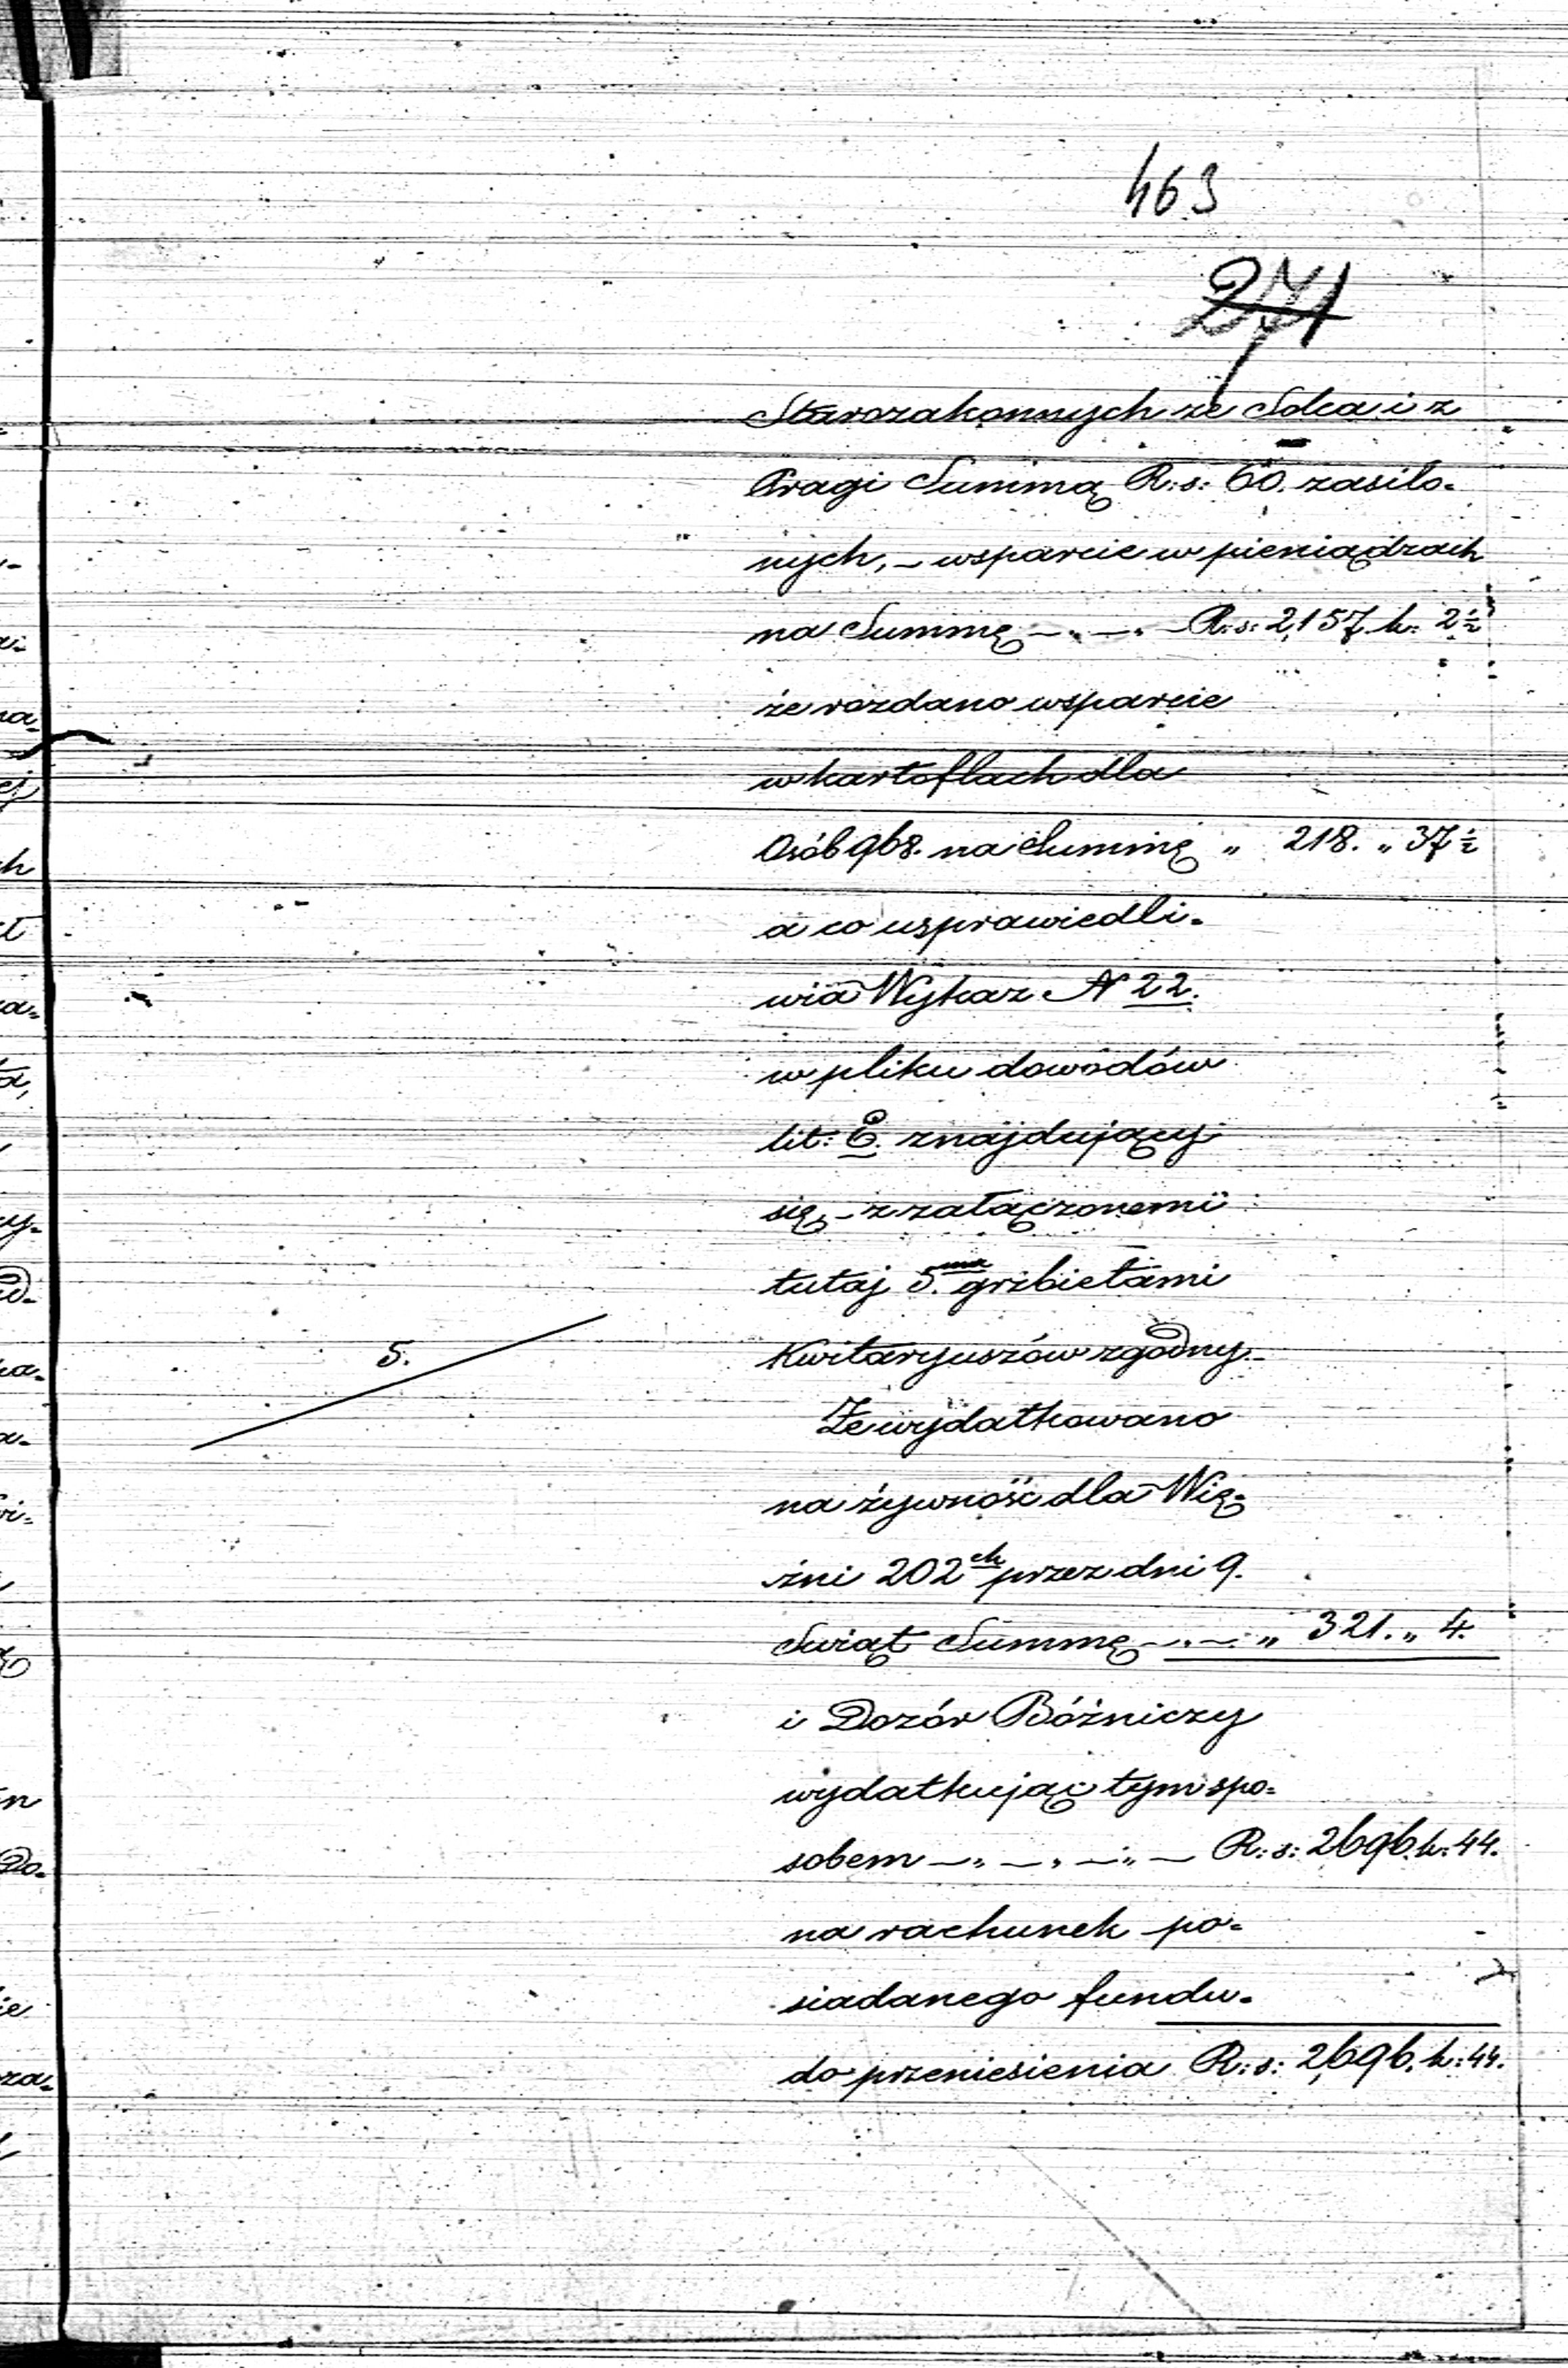 463
271
Starozakonnych ze Solca i z
Pragi Summą R: s: 60. zasilo-
nych, – wsparcie w pieniądzach
na Summę – „ – „ – R: s: 2,157 k: 2½
że rozdano wsparcie
w kartoflach dla
Osób 968. na Summę „ 218. „ 37½
a co usprawiedli-
wia Wykaz N 22.
w pliku dowodów
lit: E. znajdujący
się, – z załączonemi
tutaj 5.ma grzbietami
5.
Kwitaryuszów zgodny. –
Że wydatkowano
na żywność dla Wię-
źni 202ch przez dni 9.
Swiąt Summę – „ – „ 321. „ 4.
i Dozór Bóżniczy
wydatkując tym spo-
sobem – „ – „ – „ – R: s: 2696. k: 44.
na rachunek po-
siadanego fundu-
do przeniesienia R: s: 2,696. k: 44.